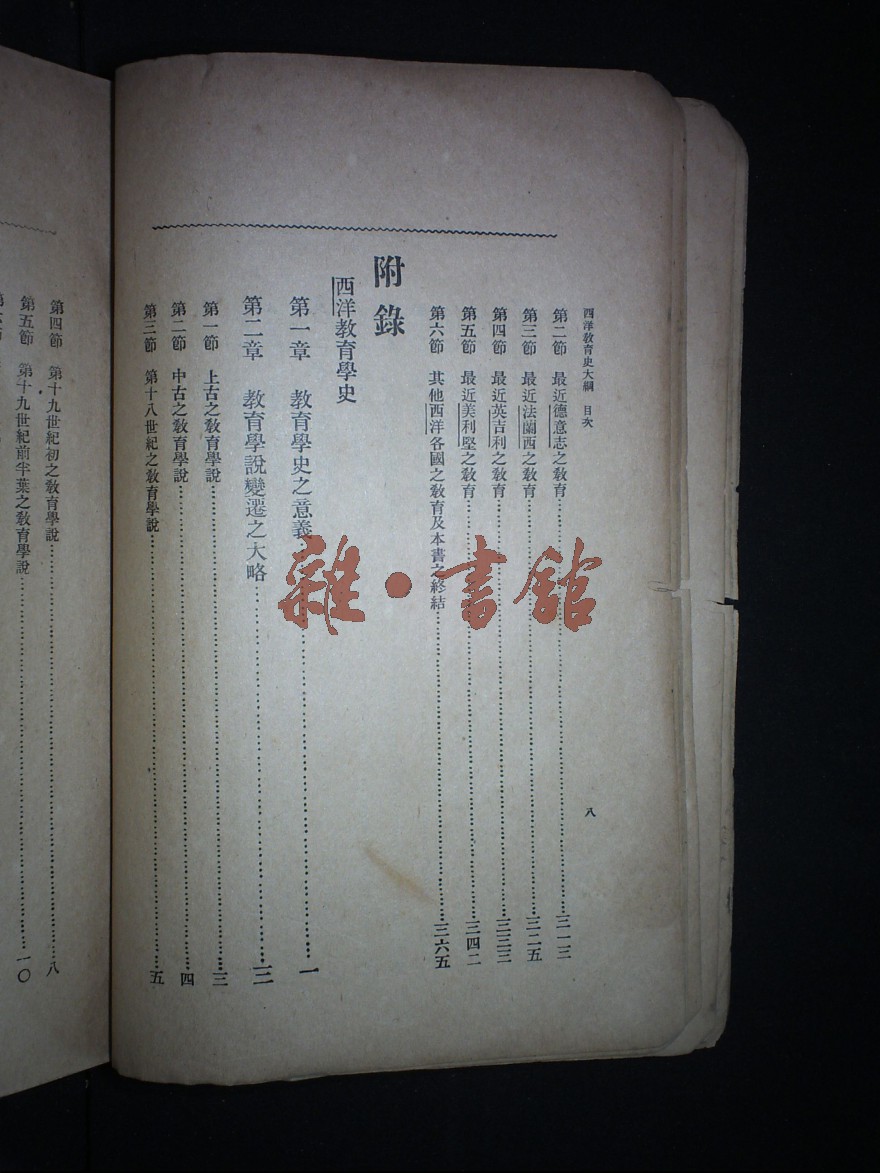 西洋教育史大綱 目次
八
第二節 最近德意志之教育……三一三
第三節 最近法蘭西之教育……三二五
第四節 最近英吉利之教育……三三三
第五節 最近美利堅之教育……三四二
第六節 其他西洋各國之教育及本書之終結……三六五
附錄
西洋教育學史
第一章 教育學史之意義……一
第二章 教育學說變遷之大略……三
第一節 上古之教育學說……三
第二節 中古之教育學說……四
第三節 第十八世紀之教育學說……五
第四節 第十九世紀初之教育學說……八
第五節 第十九世紀前半葉之教育學說……一〇
雜·書館